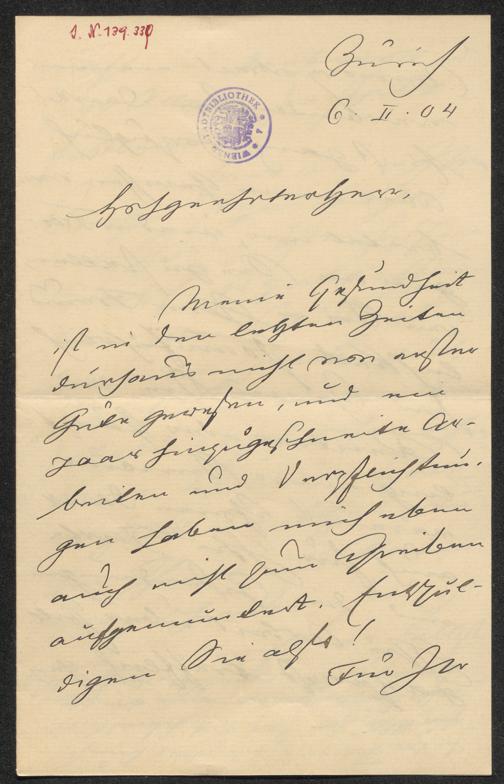 I. N. 139.339
Zürich
6. II. 04
WIENER STADTBIBLIOTHEK
Hochgeehrter Herr,
Meine Gesundheit
ist in den letzten Zeiten
durchaus nicht von erster
Güte gewesen, und ein
paar hinzugeschneite Ar-
beiten und Verpflichtun-
gen haben mich eben
auch nicht zum Schreiben
aufgemuntert. Entschul-
digen Sie also!
Für Ihr